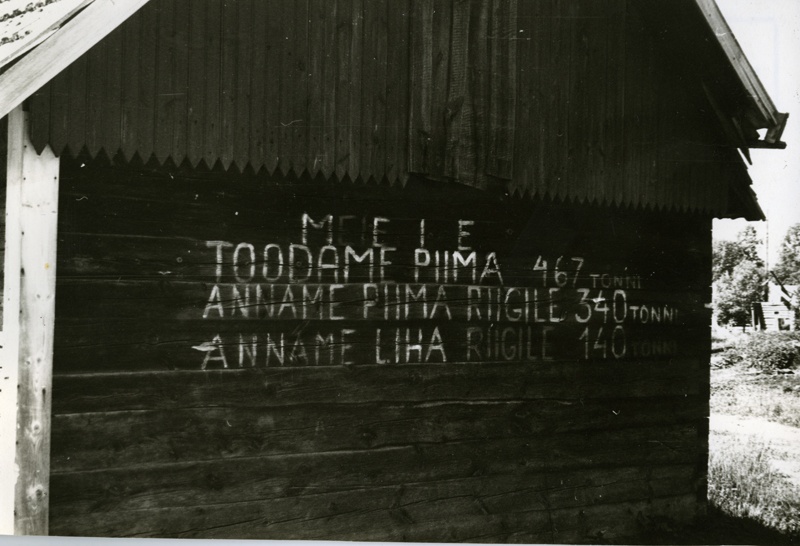 MEIE
TOODAME PIIMA 467 TONNI
ANNAME PIIMA RIIGILE 340 TONNI
ANNAME LIHA RIIGILE 140 TONNI